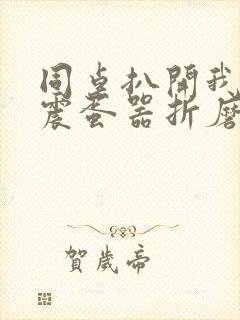 同桌扒開我
震蛋器折磨
賀歲帝